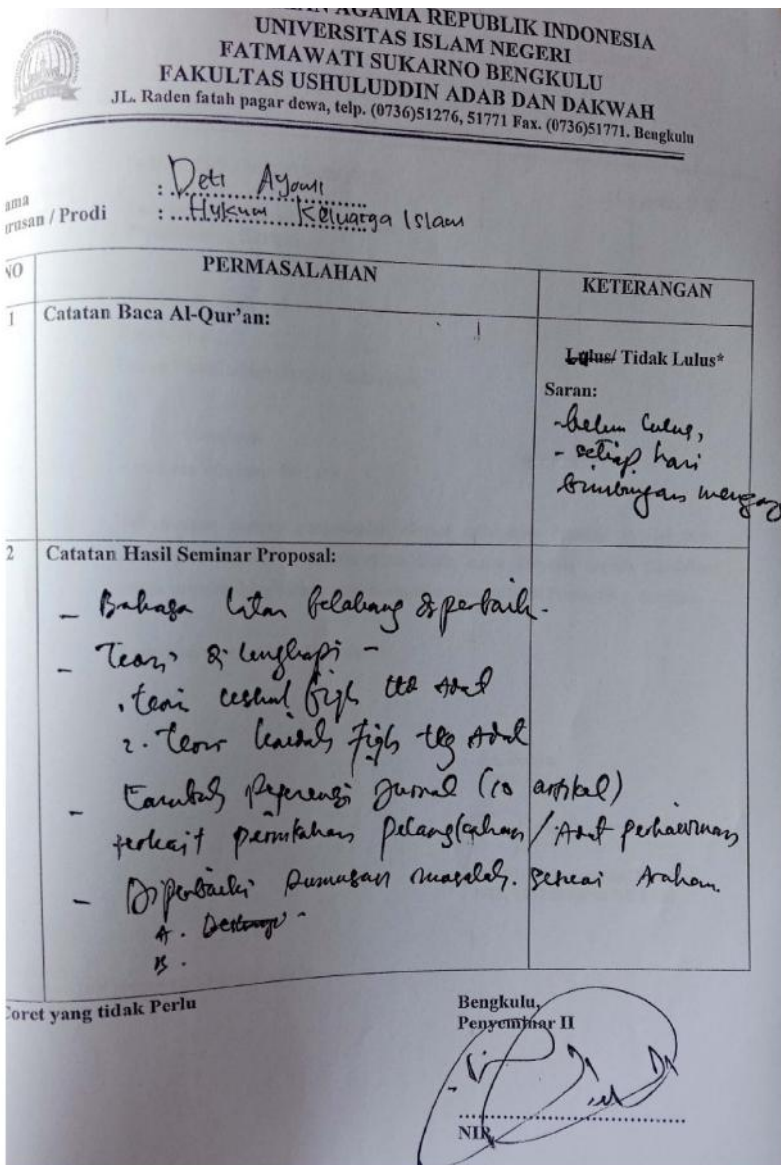 AN AGAMA REPUBLIK INDONESIA
UNIVERSITAS ISLAM NEGERI
FATMAWATI SUKARNO BENGKULU
FAKULTAS USHULUDDIN ADAB DAN DAKWAH
JL. Raden fatah pagar dewa, telp. (0736)51276, 51771 Fax. (0736)51771. Bengkulu
ama : Deti Ayomi
rusan / Prodi : Hukum Keluarga Islam
NO PERMASALAHAN KETERANGAN
1 Catatan Baca Al-Qur'an:
Lulus/ Tidak Lulus*
Saran:
- belum lulus,
- setiap hari
bimbingan
2 Catatan Hasil Seminar Proposal:
- Bahasa latar belakang diperbaiki.
- Teori di lengkapi -
teori ushul fiqh ttg Adat
2. Teori kaidah fiqh ttg Adat
- Tambah Referensi Jurnal (10 artikel)
terkait pernikahan pelangkahan / Adat perkawinan
- Diperbaiki Rumusan masalah. sesuai Arahan.
A.
B.
Coret yang tidak Perlu
Bengkulu,
Penyeminar II
NIP